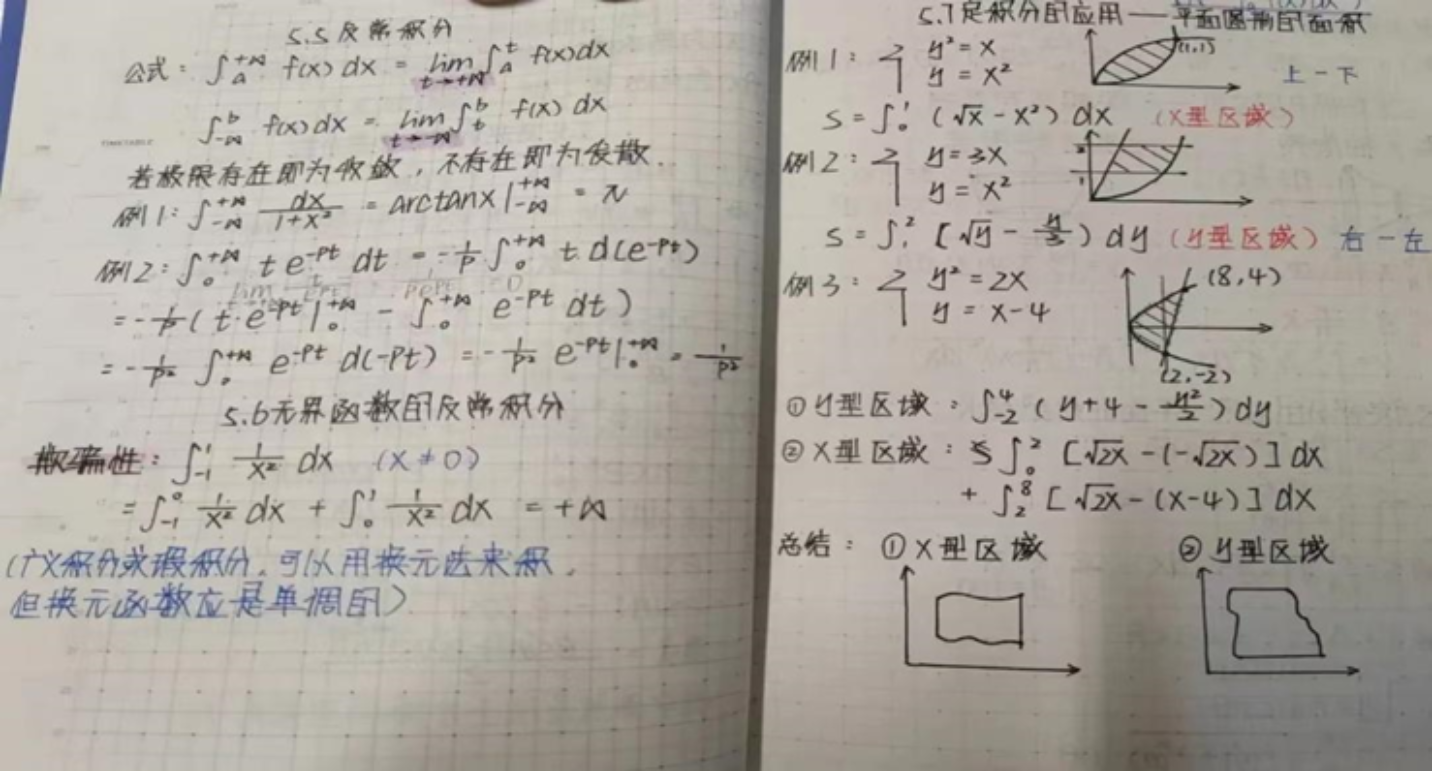 5.5 反常积分
公式：∫_a^{+∞} f(x) dx = lim_{t→+∞} ∫_a^t f(x) dx
∫_{-∞}^b f(x) dx = lim_{t→-∞} ∫_t^b f(x) dx
若极限存在即为收敛，不存在即为发散.
例1：∫_{-∞}^{+∞} dx/(1+x²) = arctanx |_{-∞}^{+∞} = π
例2：∫_0^{+∞} t e^{-pt} dt = -1/p ∫_0^{+∞} t d(e^{-pt})
= -1/p ( t e^{-pt} |_0^{+∞} - ∫_0^{+∞} e^{-pt} dt )
= -1/p² ∫_0^{+∞} e^{-pt} d(-pt) = -1/p² e^{-pt} |_0^{+∞} = 1/p²
5.6 无界函数的反常积分
: ∫_{-1}^1 1/x² dx (x≠0)
= ∫_{-1}^0 1/x² dx + ∫_0^1 1/x² dx = +∞
(广义积分或瑕积分，可以用换元法来积，
但换元函数应是单调的)
5.7 定积分的应用——平面图形的面积
例1： { y² = x
y = x²
(1,1)
上-下
S = ∫_0^1 (√x - x²) dx (X型区域)
例2： { y = 3x
y = x²
2
1
S = ∫_1^2 [√y - y/3) dy (y型区域) 右-左
例3： { y² = 2x
y = x-4
(8,4)
(2,-2)
① y型区域：∫_{-2}^4 (y+4 - y²/2) dy
② X型区域：S ∫_0^2 [√2x - (-√2x)] dx
+ ∫_2^8 [√2x - (x-4)] dx
总结： ① X型区域 ② y型区域